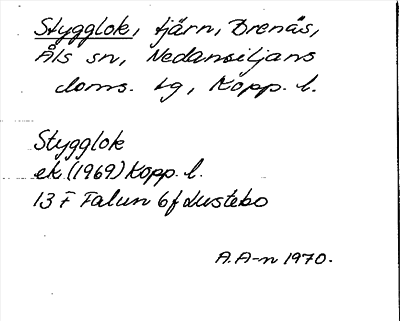 Stygglok, tjärn, Brenäs,
Åls sn, Nedansiljans
doms. lg, Kopp. l.
Stygglok
ek. (1969) Kopp. l.
13 F Falun 6f Lustebo
A.A-n 1970.